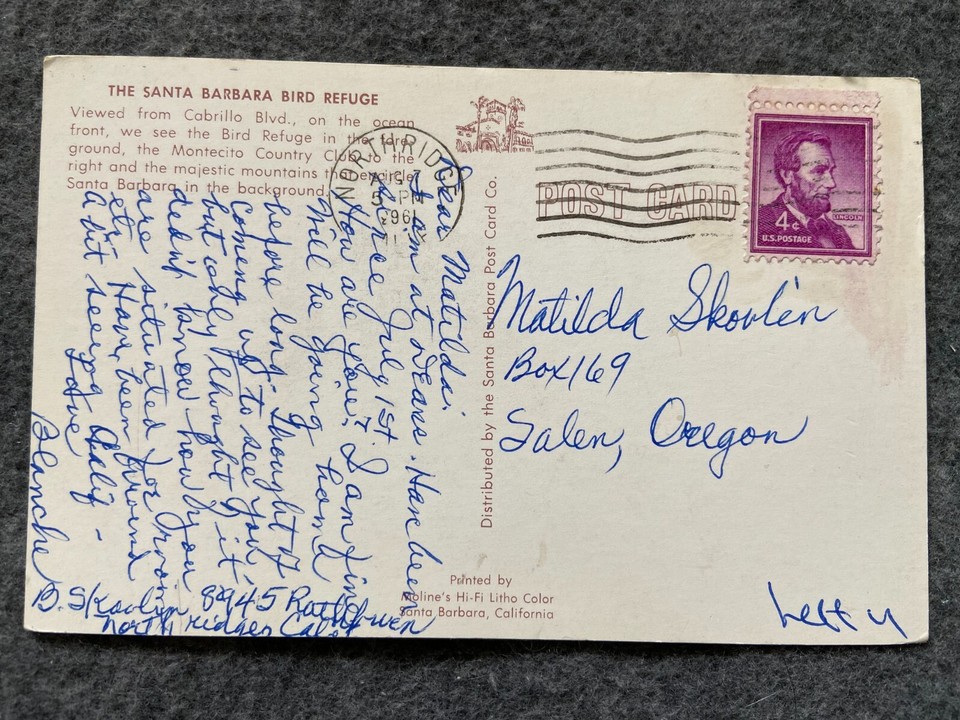 THE SANTA BARBARA BIRD REFUGE
Viewed from Cabrillo Blvd., on the ocean
front, we see the Bird Refuge in the fore-
ground, the Montecito Country Club to the
right and the majestic mountains that encircle
Santa Barbara in the background.
NORTHRIDGE
5 PM
1961
POST CARD
4¢
LINCOLN
U.S. POSTAGE
Dear Matilda:
I am at Deans. Have been
since July 1st.
How are you? I am fine
Will be going home
before long. Thought of
coming up to see you,
but only thought of it,
didn't know how you
are situated for room
etc. Have been around
a bit seeing Calif -
Love
Blanche
B. Skovlin 8945
Northridge, Calif
Distributed by the Santa Barbara Post Card Co.
Matilda Skovlin
Box 169
Salem, Oregon
Printed by
Moline's Hi-Fi Litho Color
Santa Barbara, California